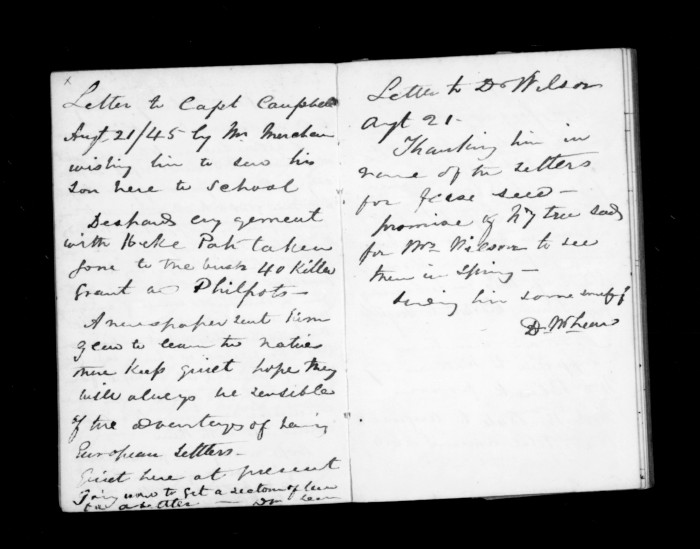 Letter to Capt Campbell
Augt 21/45 by Mr Merchan
wishing him to send his
son here to School
Despards engagement
with Heke Pah taken
gone to the bush 40 killed
Grant and Philpots
A newspaper sent him
glad to learn the natives
there keep quiet hope they
will always be sensible
of the advantages of having
European Settlers
Quiet here at present
to get a section of land
for a settler Donald McLean
Letter to Dr Wilson
Augt 21
Thanking him in
name of the settlers
for seed
promise of NZ tree seeds
for Mrs Wilson to see
them in Spring
sending him some snuff
D McLean